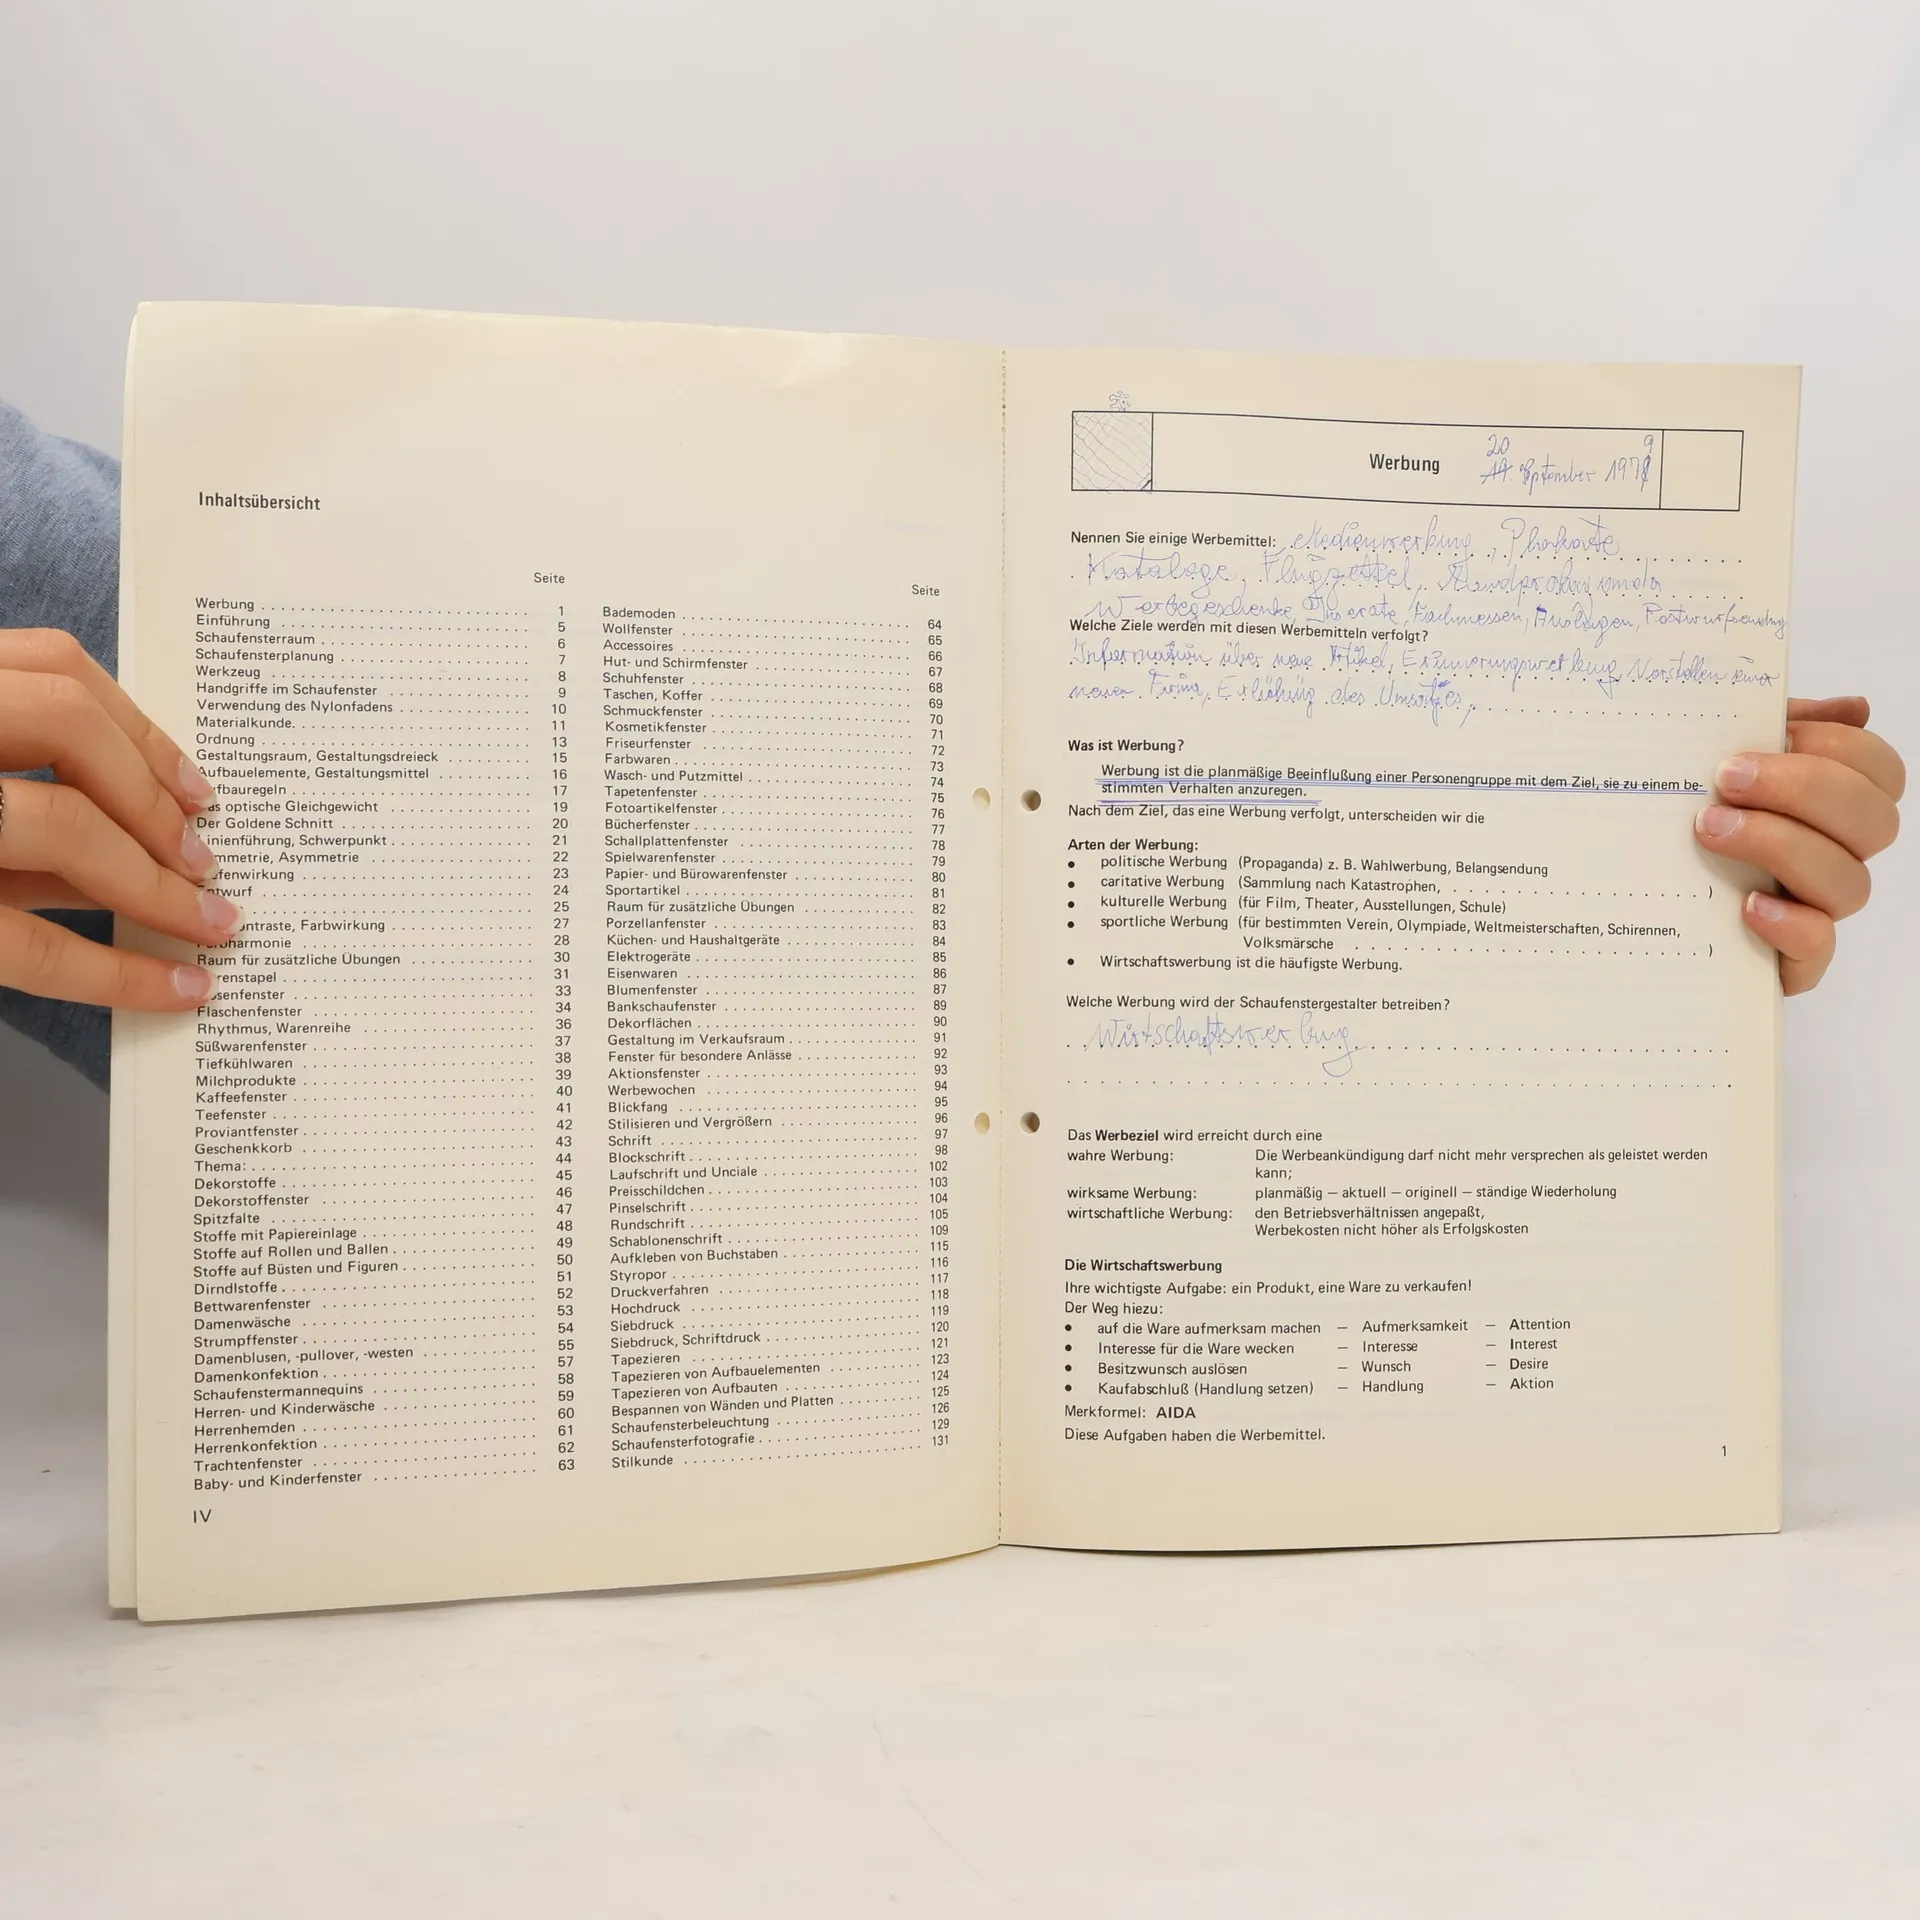 Inhaltsübersicht
Seite
Werbung . . . . . . . . . . 1
Einführung . . . . . . . . . . 5
Schaufensterraum . . . . . . . . . . 6
Schaufensterplanung . . . . . . . . . . 7
Werkzeug . . . . . . . . . . 8
Handgriffe im Schaufenster . . . . . . . . . . 9
Verwendung des Nylonfadens . . . . . . . . . . 10
Materialkunde. . . . . . . . . . . 11
Ordnung . . . . . . . . . . 13
Gestaltungsraum, Gestaltungsdreieck . . . . . . . . . . 15
Aufbauelemente, Gestaltungsmittel . . . . . . . . . . 16
fbauregeln . . . . . . . . . . 17
as optische Gleichgewicht . . . . . . . . . . 19
Der Goldene Schnitt . . . . . . . . . . 20
Linienführung, Schwerpunkt . . . . . . . . . . 21
mmetrie, Asymmetrie . . . . . . . . . . 22
efenwirkung . . . . . . . . . . 23
Entwurf . . . . . . . . . . 24
. . . . . . . . . . 25
ontraste, Farbwirkung . . . . . . . . . . 27
harmonie . . . . . . . . . . 28
Raum für zusätzliche Übungen . . . . . . . . . . 30
renstapel . . . . . . . . . . 31
osenfenster . . . . . . . . . . 33
Flaschenfenster . . . . . . . . . . 34
Rhythmus, Warenreihe . . . . . . . . . . 36
Süßwarenfenster . . . . . . . . . . 37
Tiefkühlwaren . . . . . . . . . . 38
Milchprodukte . . . . . . . . . . 39
Kaffeefenster . . . . . . . . . . 40
Teefenster . . . . . . . . . . 41
Proviantfenster . . . . . . . . . . 42
Geschenkkorb . . . . . . . . . . 43
Thema: . . . . . . . . . . 44
Dekorstoffe . . . . . . . . . . 45
Dekorstoffenster . . . . . . . . . . 46
Spitzfalte . . . . . . . . . . 47
Stoffe mit Papiereinlage . . . . . . . . . . 48
Stoffe auf Rollen und Ballen . . . . . . . . . . 49
Stoffe auf Büsten und Figuren . . . . . . . . . . 50
Dirndlstoffe . . . . . . . . . . 51
Bettwarenfenster . . . . . . . . . . 52
Damenwäsche . . . . . . . . . . 53
Strumpffenster . . . . . . . . . . 54
Damenblusen, -pullover, -westen . . . . . . . . . . 55
Damenkonfektion . . . . . . . . . . 57
Schaufenstermannequins . . . . . . . . . . 58
Herren- und Kinderwäsche . . . . . . . . . . 59
Herrenhemden . . . . . . . . . . 60
Herrenkonfektion . . . . . . . . . . 61
Trachtenfenster . . . . . . . . . . 62
Baby- und Kinderfenster . . . . . . . . . . 63
IV
Seite
Bademoden . . . . . . . . . . 64
Wollfenster . . . . . . . . . . 65
Accessoires . . . . . . . . . . 66
Hut- und Schirmfenster . . . . . . . . . . 67
Schuhfenster . . . . . . . . . . 68
Taschen, Koffer . . . . . . . . . . 69
Schmuckfenster . . . . . . . . . . 70
Kosmetikfenster . . . . . . . . . . 71
Friseurfenster . . . . . . . . . . 72
Farbwaren . . . . . . . . . . 73
Wasch- und Putzmittel . . . . . . . . . . 74
Tapetenfenster . . . . . . . . . . 75
Fotoartikelfenster . . . . . . . . . . 76
Bücherfenster . . . . . . . . . . 77
Schallplattenfenster . . . . . . . . . . 78
Spielwarenfenster . . . . . . . . . . 79
Papier- und Bürowarenfenster . . . . . . . . . . 80
Sportartikel . . . . . . . . . . 81
Raum für zusätzliche Übungen . . . . . . . . . . 82
Porzellanfenster . . . . . . . . . . 83
Küchen- und Haushaltgeräte . . . . . . . . . . 84
Elektrogeräte . . . . . . . . . . 85
Eisenwaren . . . . . . . . . . 86
Blumenfenster . . . . . . . . . . 87
Bankschaufenster . . . . . . . . . . 89
Dekorflächen . . . . . . . . . . 90
Gestaltung im Verkaufsraum . . . . . . . . . . 91
Fenster für besondere Anlässe . . . . . . . . . . 92
Aktionsfenster . . . . . . . . . . 93
Werbewochen . . . . . . . . . . 94
Blickfang . . . . . . . . . . 95
Stilisieren und Vergrößern . . . . . . . . . . 96
Schrift . . . . . . . . . . 97
Blockschrift . . . . . . . . . . 98
Laufschrift und Unciale . . . . . . . . . . 102
Preisschildchen . . . . . . . . . . 103
Pinselschrift . . . . . . . . . . 104
Rundschrift . . . . . . . . . . 105
Schablonenschrift . . . . . . . . . . 109
Aufkleben von Buchstaben . . . . . . . . . . 115
Styropor . . . . . . . . . . 116
Druckverfahren . . . . . . . . . . 117
Hochdruck . . . . . . . . . . 118
Siebdruck . . . . . . . . . . 119
Siebdruck, Schriftdruck . . . . . . . . . . 120
Tapezieren . . . . . . . . . . 121
Tapezieren von Aufbauelementen . . . . . . . . . . 123
Tapezieren von Aufbauten . . . . . . . . . . 124
Bespannen von Wänden und Platten . . . . . . . . . . 125
Schaufensterbeleuchtung . . . . . . . . . . 126
Schaufensterfotografie . . . . . . . . . . 129
Stilkunde . . . . . . . . . . 131
20 9
Werbung 14. September 197
Nennen Sie einige Werbemittel: Medienwerbung, Plakate
Kataloge, Flugzettel,
Werbegeschenke, Inserate, Fachmessen, Auslagen, Postwurfsendung
Welche Ziele werden mit diesen Werbemitteln verfolgt?
Information über neue Artikel, Erinnerungswerbung, Vorstellen einer
neuen Firma, Erhöhung des Umsatzes,
Was ist Werbung?
Werbung ist die planmäßige Beeinflußung einer Personengruppe mit dem Ziel, sie zu einem be-
stimmten Verhalten anzuregen.
Nach dem Ziel, das eine Werbung verfolgt, unterscheiden wir die
Arten der Werbung:
• politische Werbung (Propaganda) z. B. Wahlwerbung, Belangsendung
• caritative Werbung (Sammlung nach Katastrophen, . . . . . . . . . . )
• kulturelle Werbung (für Film, Theater, Ausstellungen, Schule)
• sportliche Werbung (für bestimmten Verein, Olympiade, Weltmeisterschaften, Schirennen,
Volksmärsche . . . . . . . . . . )
• Wirtschaftswerbung ist die häufigste Werbung.
Welche Werbung wird der Schaufenstergestalter betreiben?
Wirtschaftswerbung
Das Werbeziel wird erreicht durch eine
wahre Werbung: Die Werbeankündigung darf nicht mehr versprechen als geleistet werden
kann;
wirksame Werbung: planmäßig – aktuell – originell – ständige Wiederholung
wirtschaftliche Werbung: den Betriebsverhältnissen angepaßt,
Werbekosten nicht höher als Erfolgskosten
Die Wirtschaftswerbung
Ihre wichtigste Aufgabe: ein Produkt, eine Ware zu verkaufen!
Der Weg hiezu:
• auf die Ware aufmerksam machen – Aufmerksamkeit – Attention
• Interesse für die Ware wecken – Interesse – Interest
• Besitzwunsch auslösen – Wunsch – Desire
• Kaufabschluß (Handlung setzen) – Handlung – Aktion
Merkformel: AIDA
Diese Aufgaben haben die Werbemittel.
1